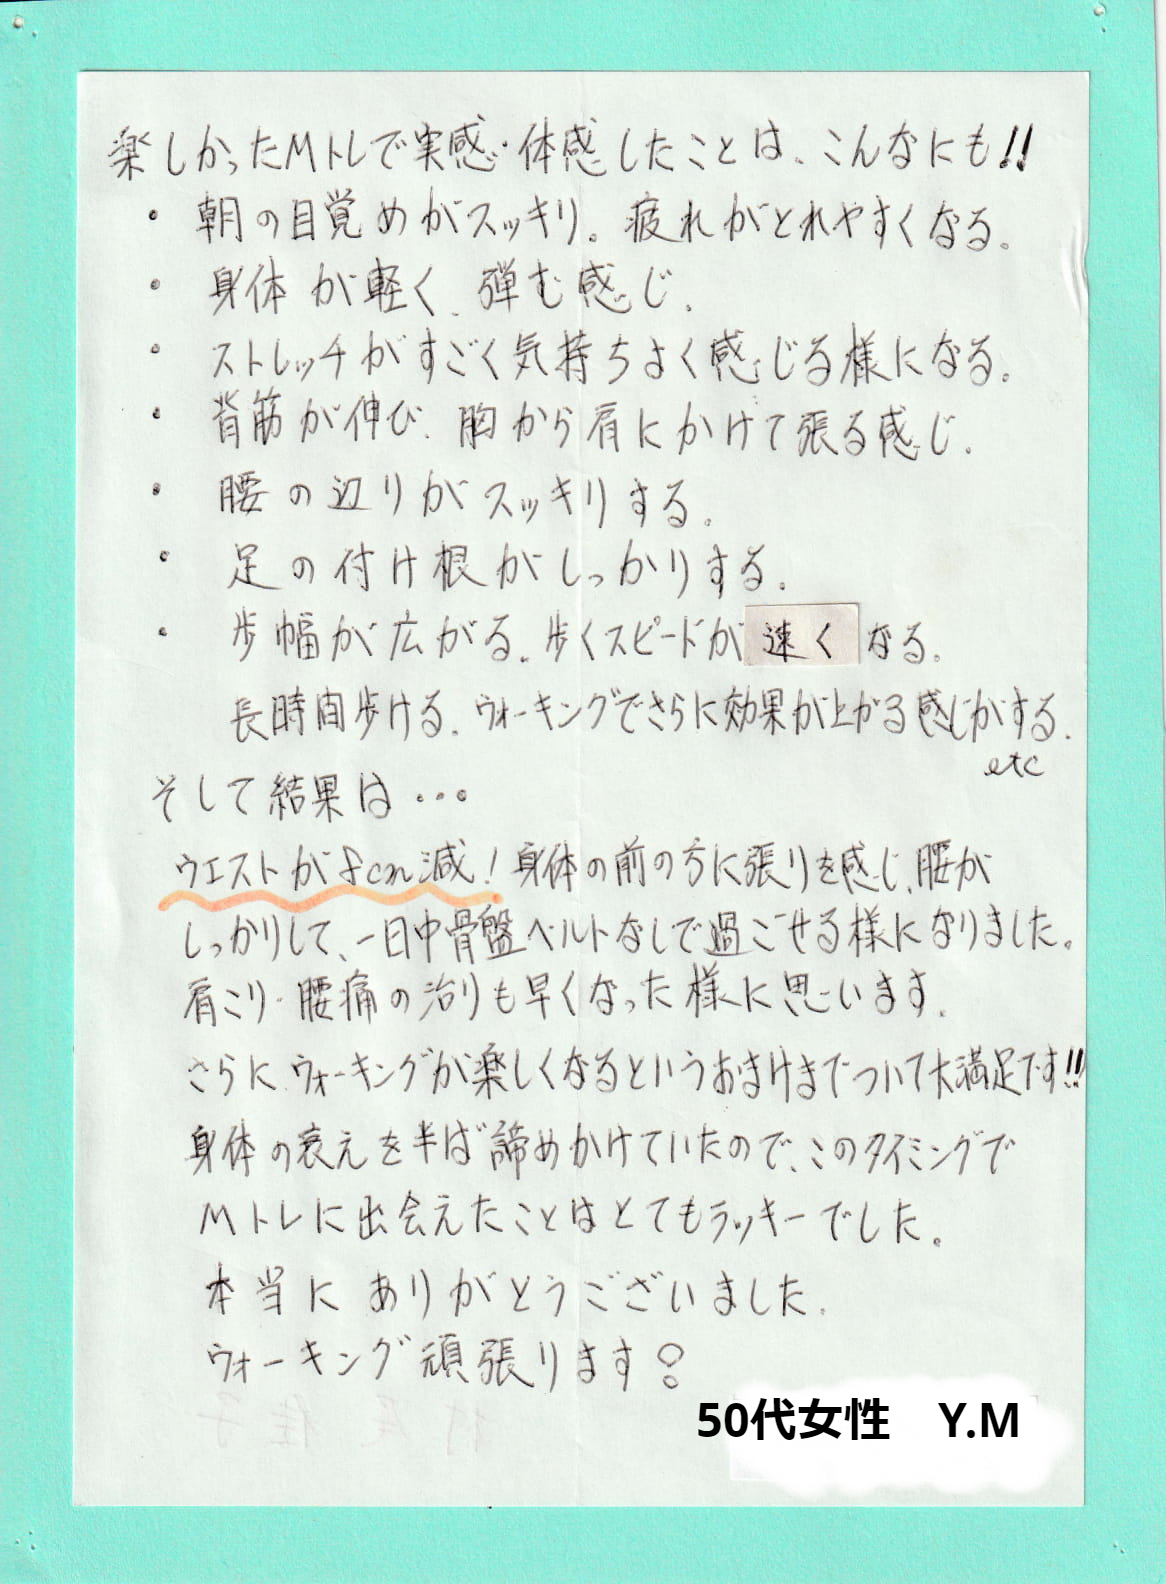 楽しかったMトレで実感・体感したことは、こんなにも!!
・朝の目覚めがスッキリ。疲れがとれやすくなる。
・身体が軽く、弾む感じ。
・ストレッチがすごく気持ちよく感じる様になる。
・背筋が伸び、胸から肩にかけて張る感じ。
・腰の辺りがスッキリする。
・足の付け根がしっかりする。
・歩幅が広がる。歩くスピードが速くなる。
長時間歩ける。ウォーキングでさらに効果が上がる感じがする。
etc
そして結果は・・・
ウエストが8cm減!身体の前の方に張りを感じ、腰が
しっかりして、一日中骨盤ベルトなしで過ごせる様になりました。
肩こり・腰痛の治りも早くなった様に思います。
さらに、ウォーキングが楽しくなるというおまけまでついて大満足です!!
身体の衰えを半ば諦めかけていたので、このタイミングで
Mトレに出会えたことはとてもラッキーでした。
本当にありがとうございました。
ウォーキング頑張ります
50代女性 Y.M